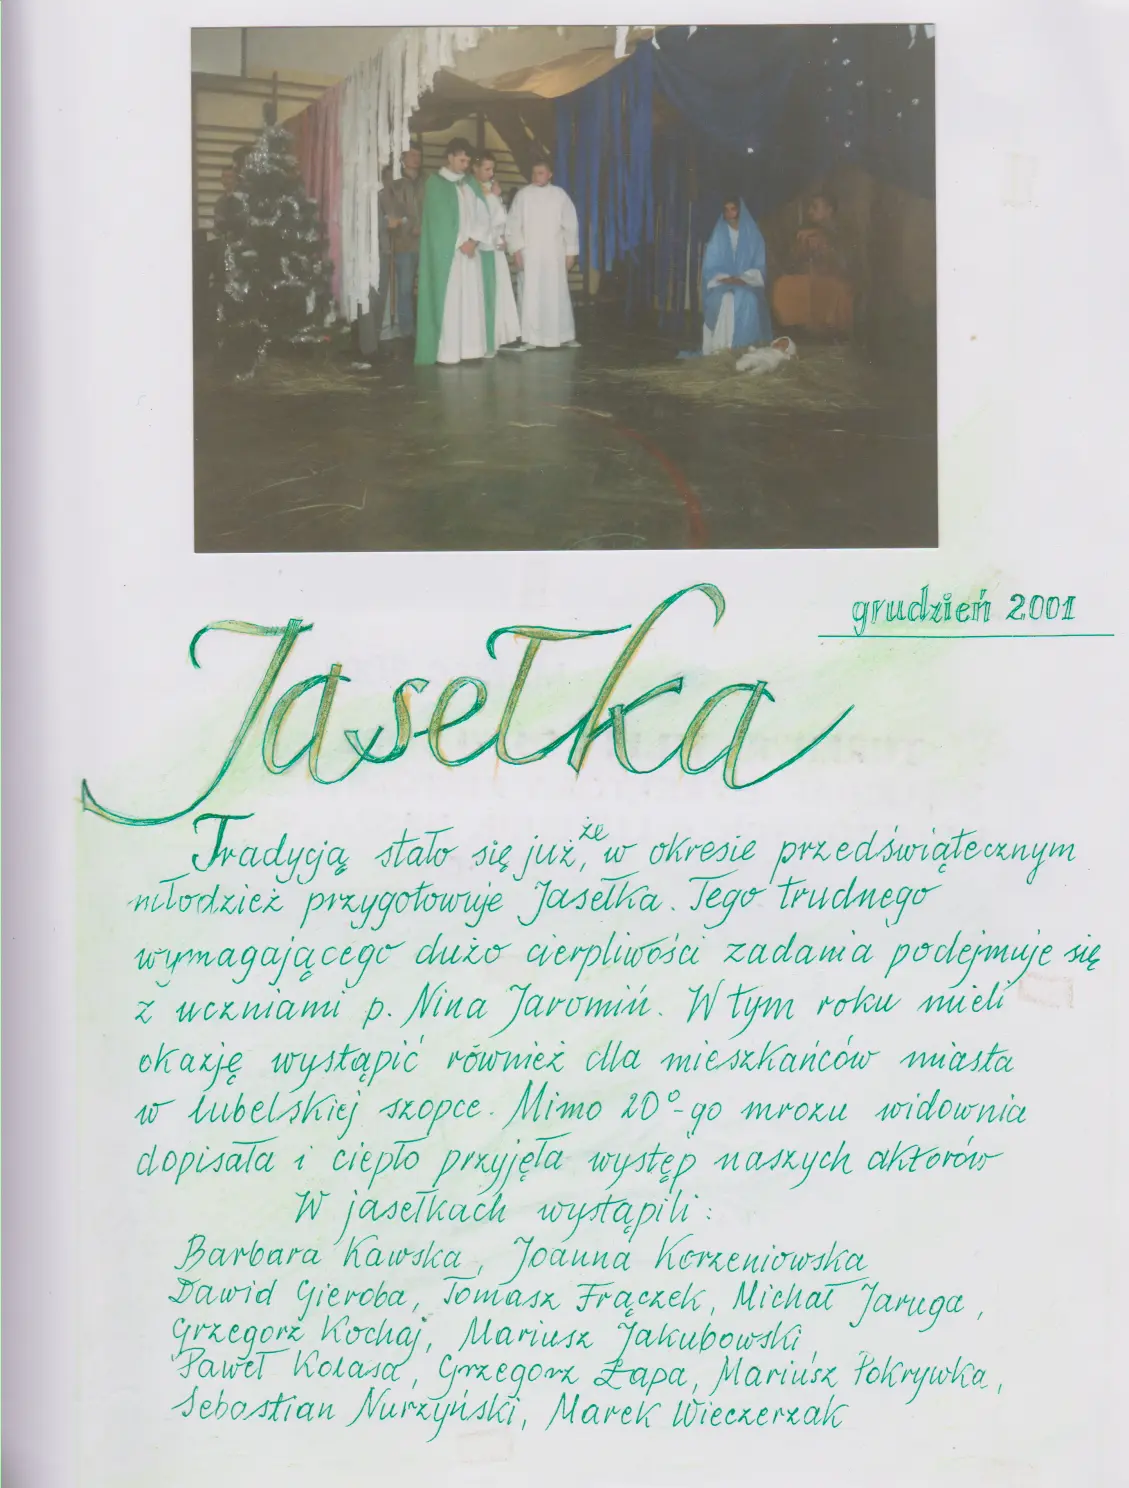 grudzień 2001
Jasełka
Tradycją stało się już, że w okresie przedświątecznym
młodzież przygotowuje Jasełka. Tego trudnego
wymagającego dużo cierpliwości zadania podejmuje się
z uczniami p. Nina Jaromiń. W tym roku mieli
okazję wystąpić również dla mieszkańców miasta
w lubelskiej szopce. Mimo 20°-go mrozu widownia
dopisała i ciepło przyjęła występ naszych aktorów
W jasełkach wystąpili:
Barbara Kawska, Joanna Korzeniowska
Dawid Gieroba, Tomasz Frączek, Michał Jaruga,
Grzegorz Kochaj, Mariusz Jakubowski,
Paweł Kolasa, Grzegorz Łapa, Mariusz Pokrywka,
Sebastian Nurzyński, Marek Wieczerzak